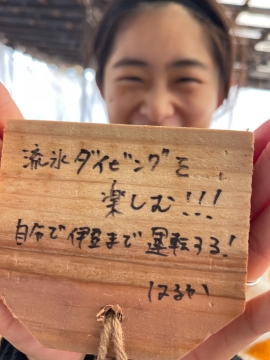 流氷ダイビングを
楽しむ!!!
自分で伊豆まで運転する!
はるか